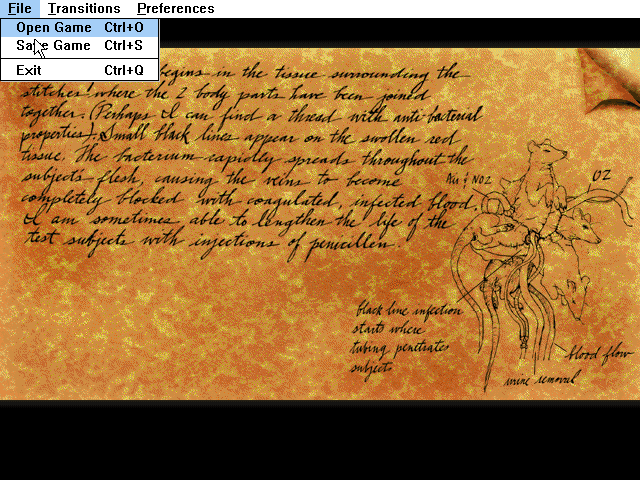 File Transitions Preferences
Open Game Ctrl+O
Save Game Ctrl+S
Exit Ctrl+Q
begins in the tissue surrounding the
stitches where the 2 body parts have been joined
together. Perhaps I can find a thread with anti bacterial
properties). Small black lines appear on the swollen red
tissue. The bacterium rapidley spreads throughout the
subjects flesh, causing the veins to become
completely blocked with coagulated, infected blood.
I am sometimes able to lengthen the life of the
test subjects with injections of penicillen.
Air & NO2
O2
black line infection
starts where
tubing penetrates
subject
blood flow
urine removal